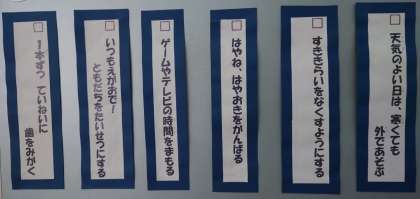 天気のよい日は、寒くても
外であそぶ
すききらいをなくすようにする
はやね、はやおきをがんばる
ゲームやテレビの時間をまもる
いつもえがおで！
ともだちをたいせつにする
1本ずつ ていねいに
歯をみがく